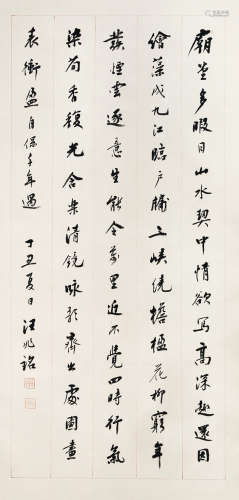 廟堂多暇日山水契中情欲寫高深趣還因
繪藻成九江臨戶牖三峽繞檐楹花柳窮年
發煙雲逐意生能令萬里近不覺四時行氣
染荀香馥光含樂清鏡詠歌齊出處圖畫
表衝盈自保千年遇 丁丑夏日 汪兆銘